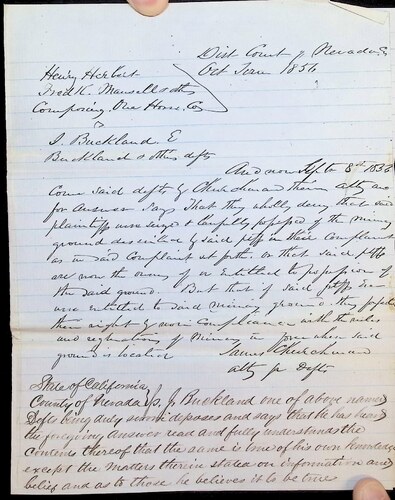 Dist Court of Nevada Co
Oct Term 1856
Henry Herbert
Fred K. Mansell & others
Composing One Horse Co
vs
J. Buckland E.
Buckland & others defts
And now Sept 8th 1856
Come said defts by Churchman their atty and
for Answer Says That they wholly deny that said
plaintiffs were seized & lawfully possessed of the mining
ground described by said plff in their Complaint
as in said Complaint set forth. or that said plffs
are now the owners of or entitled to possession of
the said ground. But that if said plffs ever
were entitled to said mining ground they forfeited
their right by non Compliance with the rules
and regulations of Miners in force where said
ground is located
James Churchman
atty for Defts
State of California
County of Nevada ss J. Buckland one of above named
Defts being duly sworn deposes and says that he has heard
the foregoing answer read and fully understands the
contents thereof that the same is true of his own knowledge
except the matters therein stated on information and
belief and as to those he believes it to be true